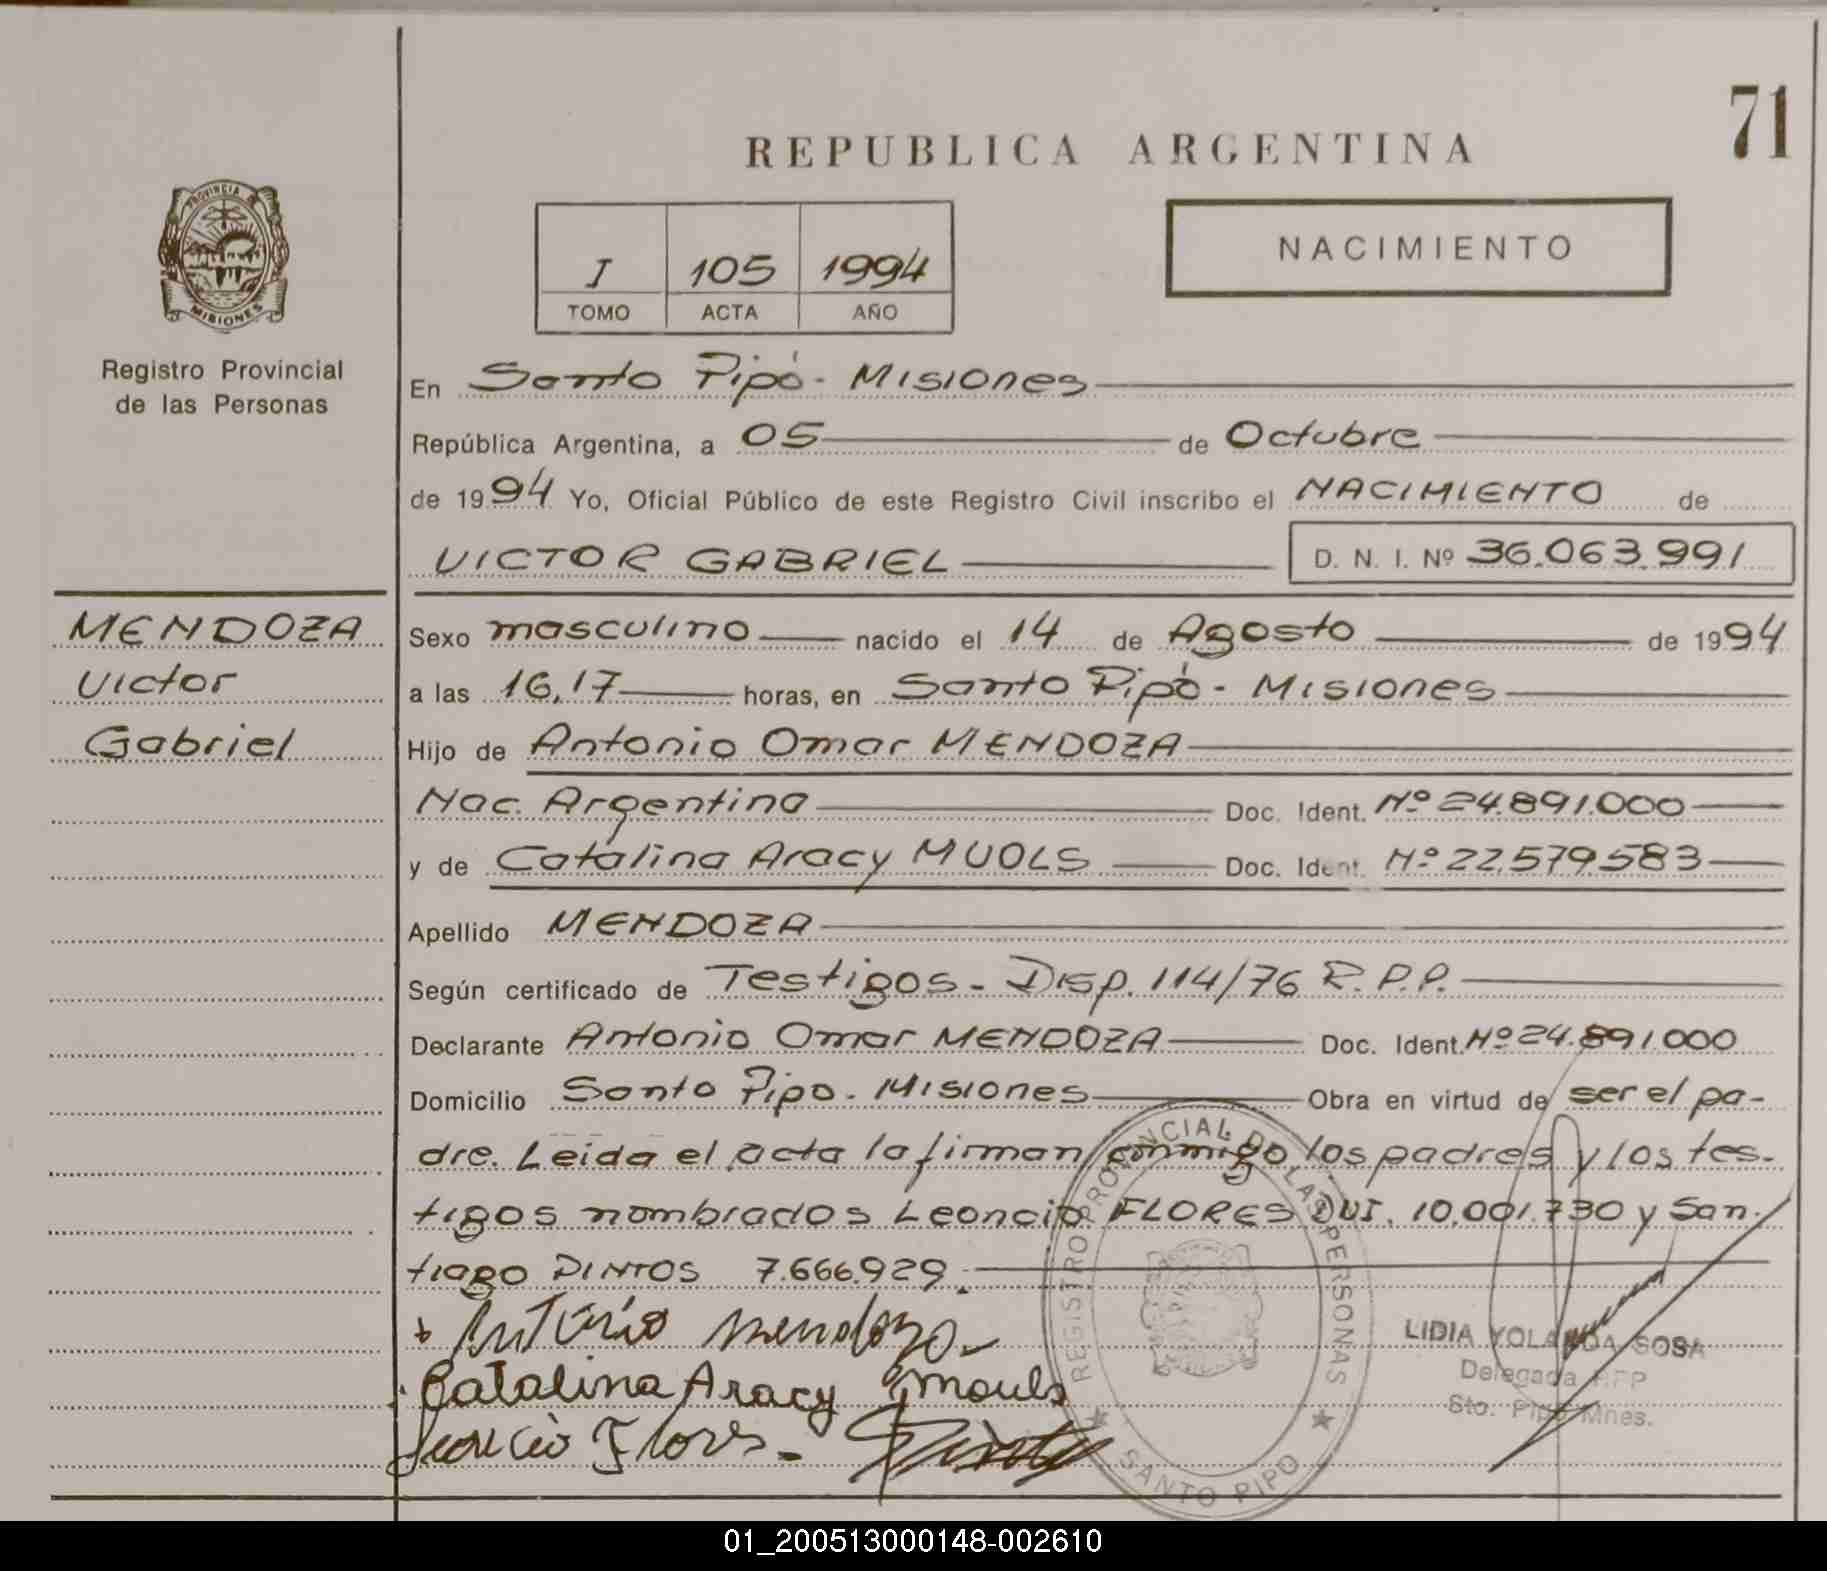 71
REPUBLICA ARGENTINA
PROVINCIA DE
MISIONES
I 105 1994
TOMO ACTA AÑO
NACIMIENTO
Registro Provincial
de las Personas
En Santo Pipó - Misiones
República Argentina, a 05 de Octubre
de 1994 Yo, Oficial Público de este Registro Civil inscribo el NACIMIENTO de
VICTOR GABRIEL D. N. I. Nº 36.063.991
MENDOZA
Victor
Gabriel
Sexo masculino nacido el 14 de Agosto de 1994
a las 16,17 horas, en Santo Pipó - Misiones
Hijo de Antonio Omar MENDOZA
Nac. Argentina Doc. Ident. Nº 24.891.000
y de Catalina Aracy MUOLS Doc. Ident. Nº 22.579.583
Apellido MENDOZA
Según certificado de Testigos - Disp. 114/76 R.P.P.
Declarante Antonio Omar MENDOZA Doc. Ident. Nº 24.891.000
Domicilio Santo Pipo - Misiones Obra en virtud de ser el pa-
dre. Leida el acta la firman conmigo los padres y los tes-
tigos nombrados Leoncio FLORES DNI. 10.001.730 y San-
tiago PINTOS 7.666.929.
Antonio Mendoza
Catalina Aracy Mouls
Flores
REGISTRO PROVINCIAL DE LAS PERSONAS
SANTO PIPO
LIDIA YOLANDA SOSA
Delegada RPP
Sto. Pipó Mnes.
01_200513000148-002610